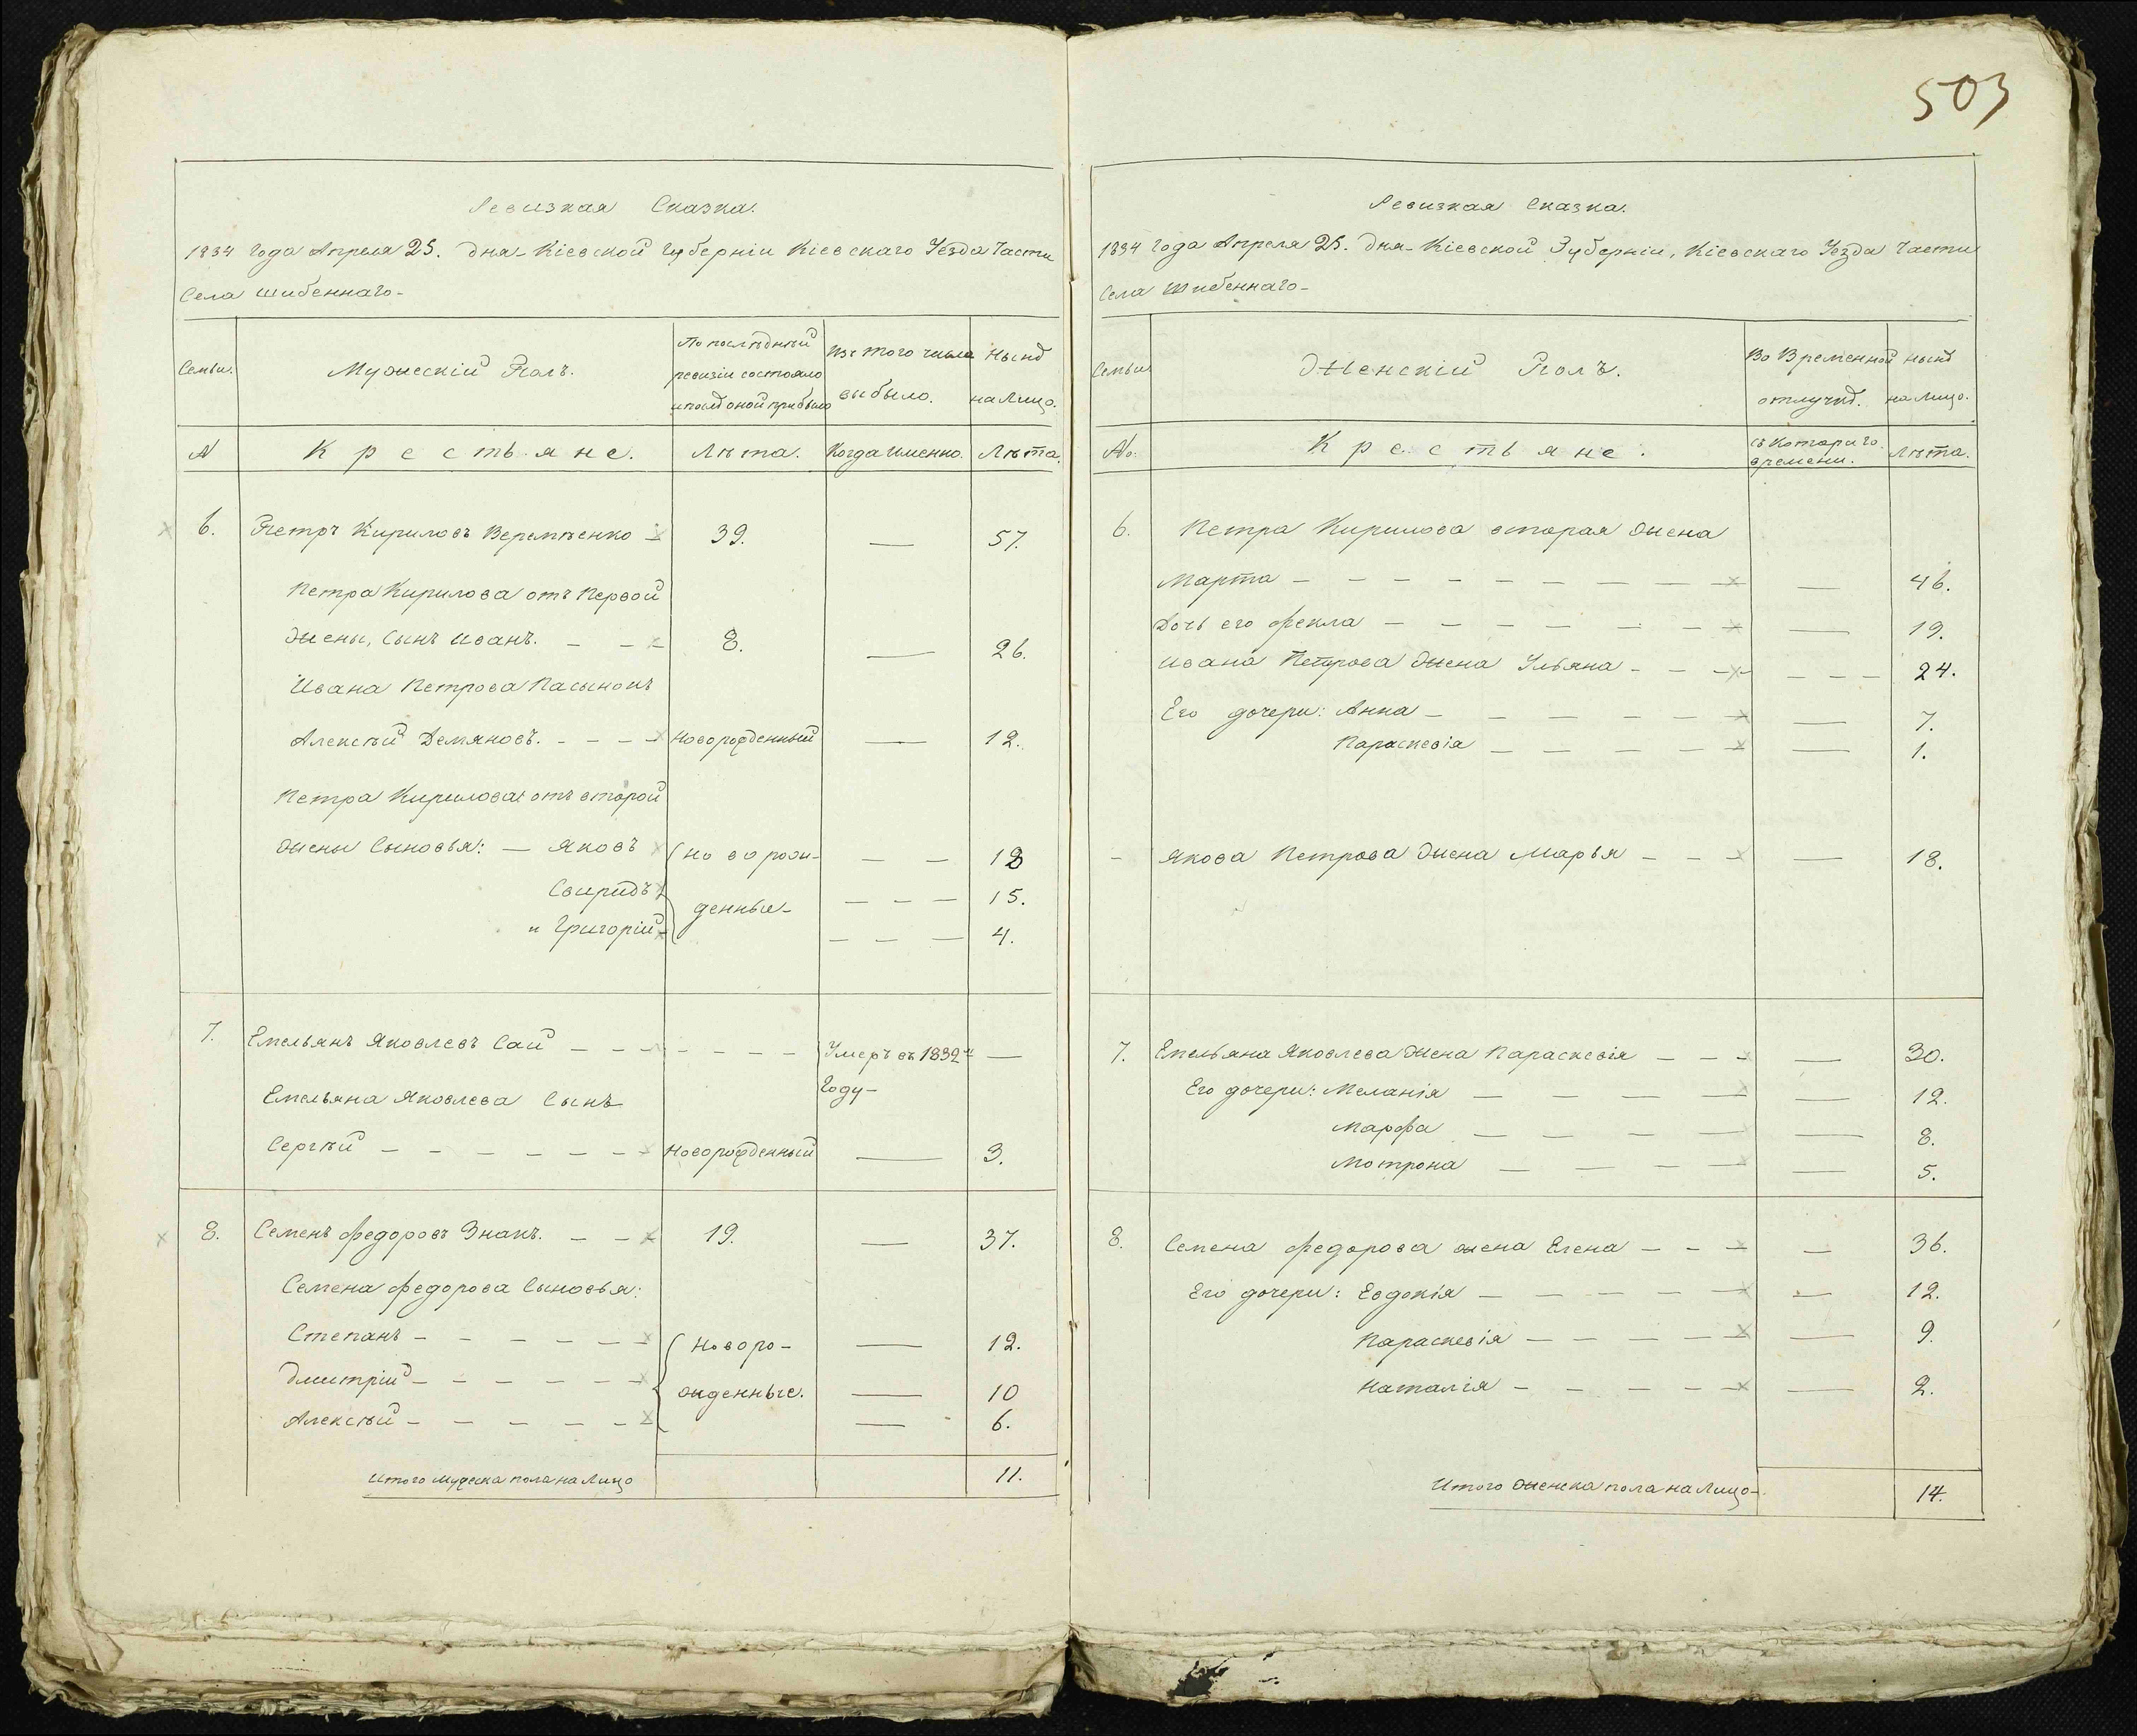 503
Ревизкая Сказка.
1834 Года Апреля 25. Дня Кіевской Губерніи Кіевскаго Уезда Части
Села Шибеннаго
Семьи.
Мужескій Полъ.
По последней ревизіи состояло и после оной прибыло
Изъ того числа выбыло.
Ныне на Лицо.
№
Крестьяне.
Лѣта.
Когда Именно.
Лѣта.
6. Петръ Кириловъ Веремѣенко 39. — 57.
Петра Кирилова отъ Первой
Жены, Сынъ Иванъ. 8. — 26.
Ивана Петрова Пасынокъ
Алексѣй Демяновъ. Новорожденный — 12.
Петра Кирилова отъ второй
жены Сыновья: — Яковъ Новорож- — 18
Свиридъ денные — 15.
и Григорій — 4.
7. Емельянъ Яковлевъ Сай — Умеръ въ 1832 —
Году
Емельяна Яковлева Сынъ
Сергѣй Новорожденный — 3.
8. Семенъ Федоровъ Знакъ. 19. — 37.
Семена Федорова Сыновья:
Степанъ Новоро- — 12.
Дмитрій жденные. — 10
Алексѣй — 6.
Итого мужеска пола на Лицо 11.
Ревизкая Сказка.
1834 Года Апреля 25. Дня Кіевской Губерніи, Кіевскаго Уезда Части
Села Шибеннаго
Семьи
Женскій Полъ.
Во Временной отлучке.
Ныне на Лицо.
№.
Крестьяне.
Съ Котораго времени.
Лѣта.
6. Петра Кирилова вторая жена
Марта — 46.
Дочь его Фекла — 19.
Ивана Петрова жена Ульяна — 24.
Его дочери: Анна — 7.
Параскевія — 1.
Якова Петрова жена Марья — 18.
7. Емельяна Яковлева жена Параскевія — 30.
Его дочери: Меланія — 12.
Марфа — 8.
Мотрона — 5.
8. Семена Федорова жена Елена — 36.
Его дочери: Евдокія — 12.
Параскевія — 9.
Наталія — 2.
Итого женска пола на Лицо 14.